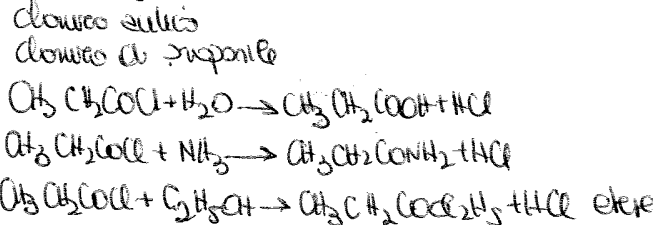 cloruro
cloruro di propanile
CH₃ CH₂COCl + H₂O → CH₃CH₂COOH + HCl
CH₃ CH₂COCl + NH₃ → CH₃CH₂CONH₂ + HCl
CH₃ CH₂COCl + C₂H₅OH → CH₃CH₂COOC₂H₅ + HCl etere